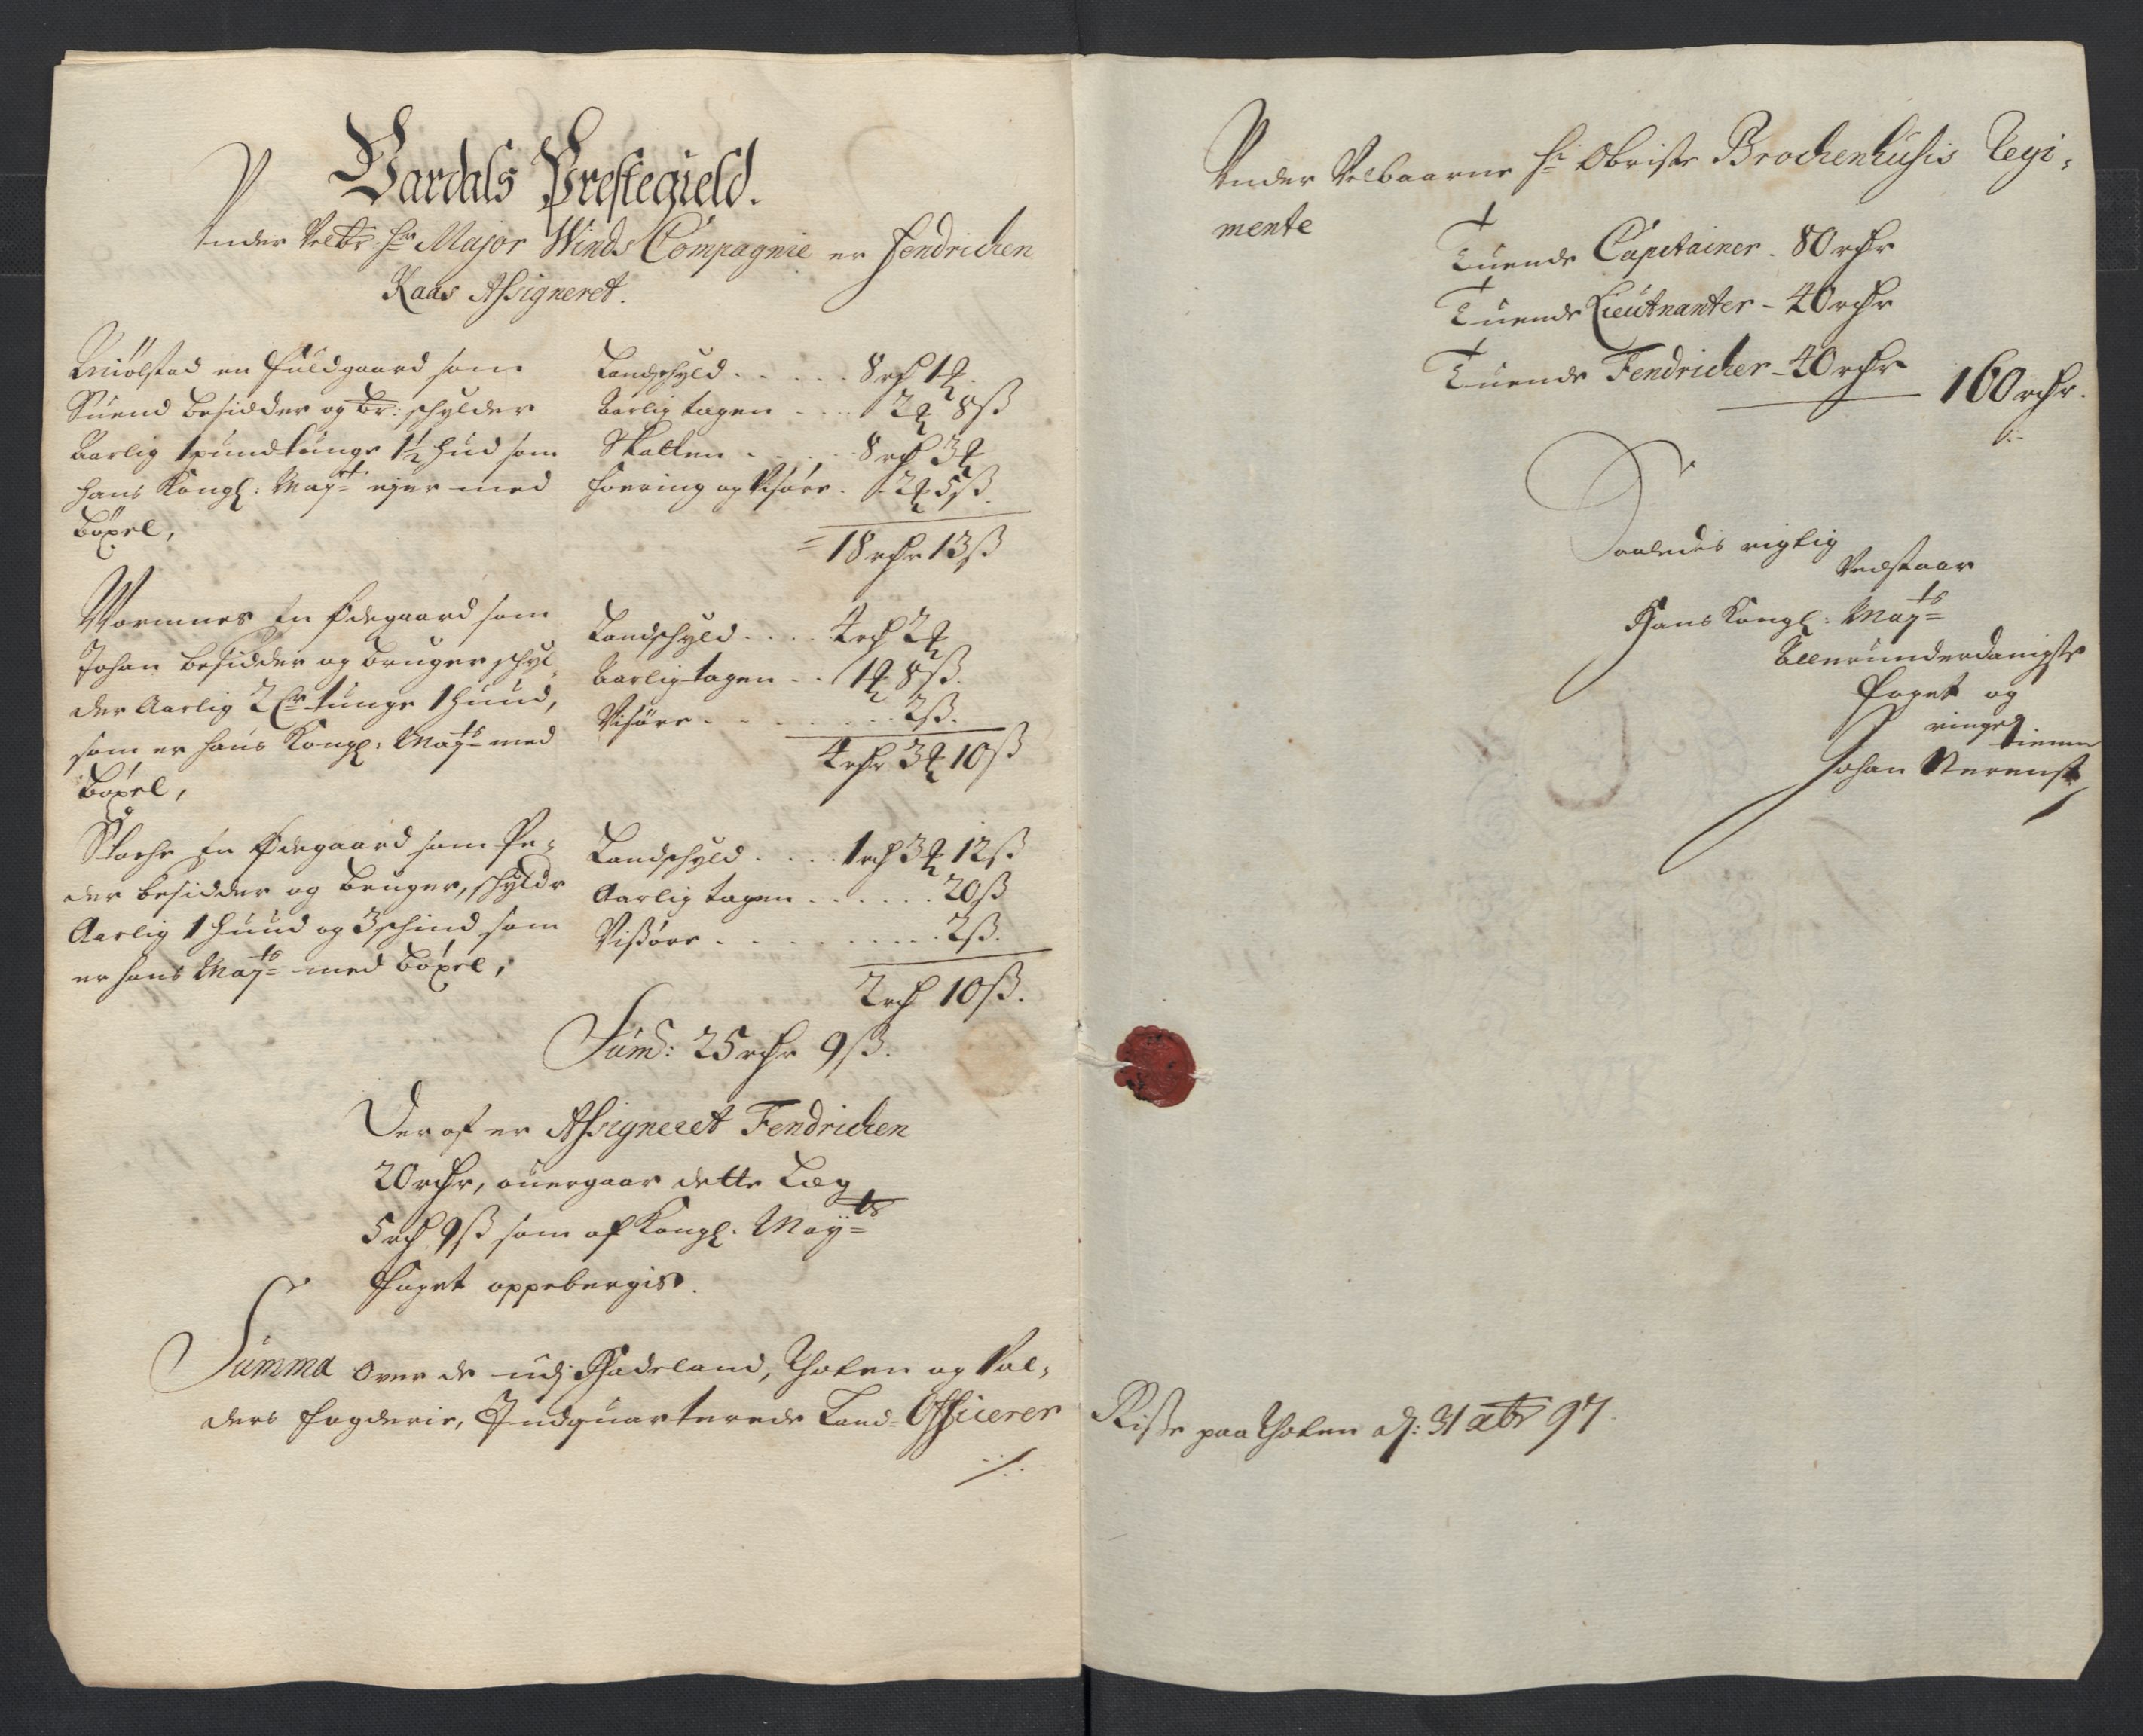 Vardals Prestegield.
Under Velbr: Hr Major Winds Compagnie er Fendrichen
Kaas Assigneret.
Miølstad en fuldgaard som
Suend besidder og br: schylder
Aarlig 1 pund tunge 1½ hud som
hans Kongl: Mayt ejer med
bøxel,
Landschyld . . . . . 8 rd 1 ort
Aarlig tagen . . . . 2 ort 8 ß
Skatten . . . . . 8 rd 3 ort
foering og Visøre . . 2 ort 5 ß
18 rdr 13 ß
Wormnes En Ødegaard som
Johan besidder og bruger schyl,
der Aarlig 2 tunge 1 huud,
som er hans Kongl: Mayts med
bøxel,
Landschyld . . . . 4 rd 2 ort
Aarlig tagen . . 1 ort 8 ß.
Visøre . . . . . . . . 2 ß.
4 rdr 3 ort 10 ß
En Ødegaard som Pe,
der besidder og bruger, schyldr
Aarlig 1 huud og 3 schind som
er hans Mayts med bøxel,
Landschyld . . . . 1 rd 3 ort 12 ß
Aarlig tagen . . . . . . 20 ß
Vißøre . . . . . . . . . 2 ß.
2 rd 10 ß.
Sum: 25 rdr 9 ß.
Deraf er Assigneret Fendrichen
20 rdr, ouergaar dette Læg
5 rd 9 ß som af Kongl. Mayts
Foget oppebergis.
Summa Over de udj Hadeland, Thoten og Val,
ders fogderie, Indquarterede Land-Officerer
./.
Under Velbaarne Hr Obriste Brochenhusis Regi,
mente
Tuende Capitainer . 80 rdr
Tuende Lieutnanter - 40 rdr
Tuende Fendricher - 40 rdr
160 rdr.
Saaledes rigtig
Vedstaar
Hans Kongl: Mayts
Allerunderdanigste
Foget og
ringe
tiener
Johan
Riße paa Thoten d: 31 xbr 97.